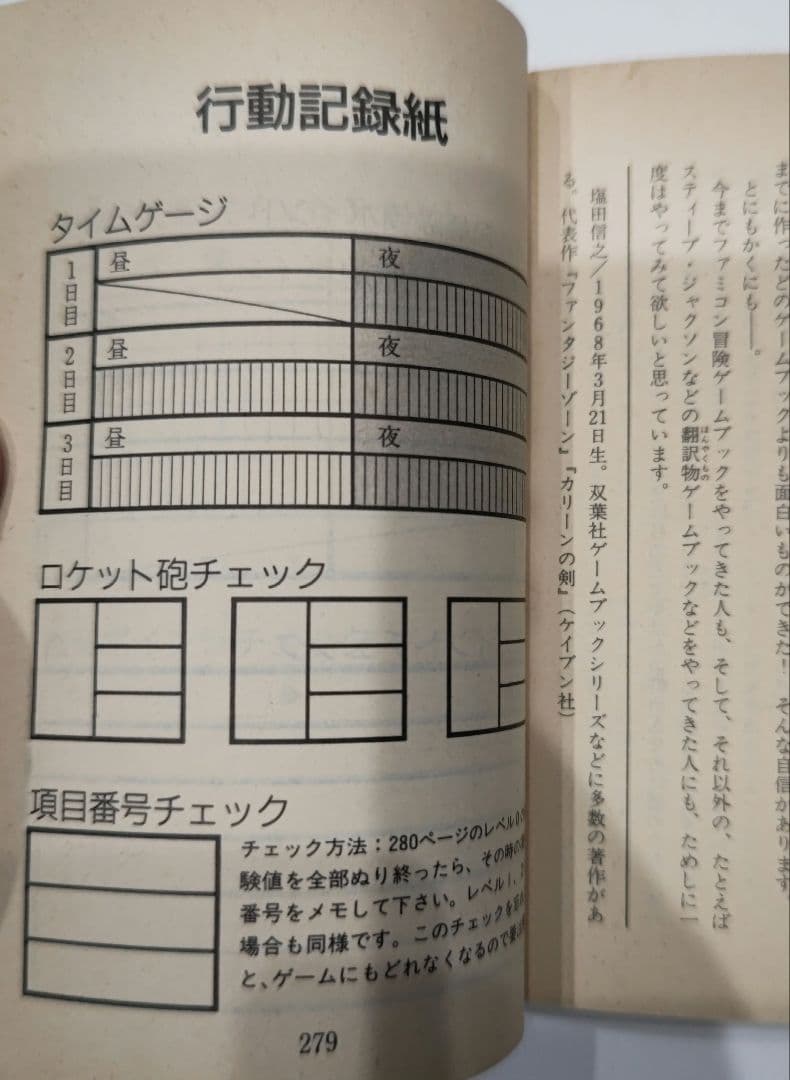 行動記録紙
タイムゲージ
1日目
昼
夜
2日目
昼
夜
3日目
昼
夜
ロケット砲チェック
項目番号チェック
チェック方法：280ページのレベル0の
験値を全部ぬり終ったら、その時の
番号をメモして下さい。レベル1、
場合も同様です。このチェックを
と、ゲームにもどれなくなるので
279
までに作ったどのゲームブックよりも面白いものができた！　そんな自信があります。
とにもかくにも――。
今までファミコン冒険ゲームブックをやってきた人も、そして、それ以外の、たとえば
スティーブ・ジャクソンなどの翻訳物ゲームブックなどをやってきた人にも、ためしに一
ほんやくもの
度はやってみて欲しいと思っています。
塩田信之／1968年3月21日生。双葉社ゲームブックシリーズなどに多数の著作があ
る。代表作『ファンタジーゾーン』『カリーンの剣』（ケイブン社）